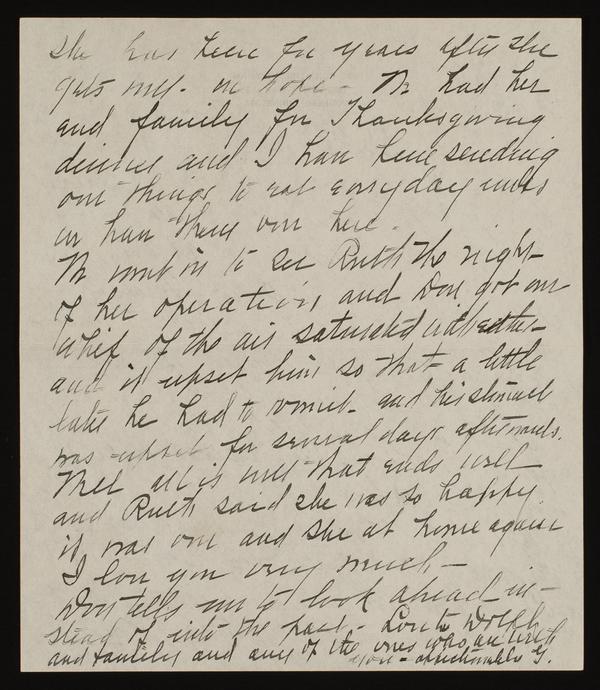 she has been for years after she
gets well. we hope - We had her
and family for Thanksgiving
dinner and I have been sending
over things to eat everyday unless
we have them over here.
We went in to see Ruth the night
of her operation and Don got one
whif of the air saturated with ether-
and it upset him so that a little
later he had to vomit - and his stomach
was upset for several days afterwards.
Well all is well that ends well
and Ruth said she was so happy
it was over and she at home again
I love you very much -
Don tells me to look ahead in-
stead of into the past - Love to Dolph
and family and any of the ones who are with
you - affectionately G.